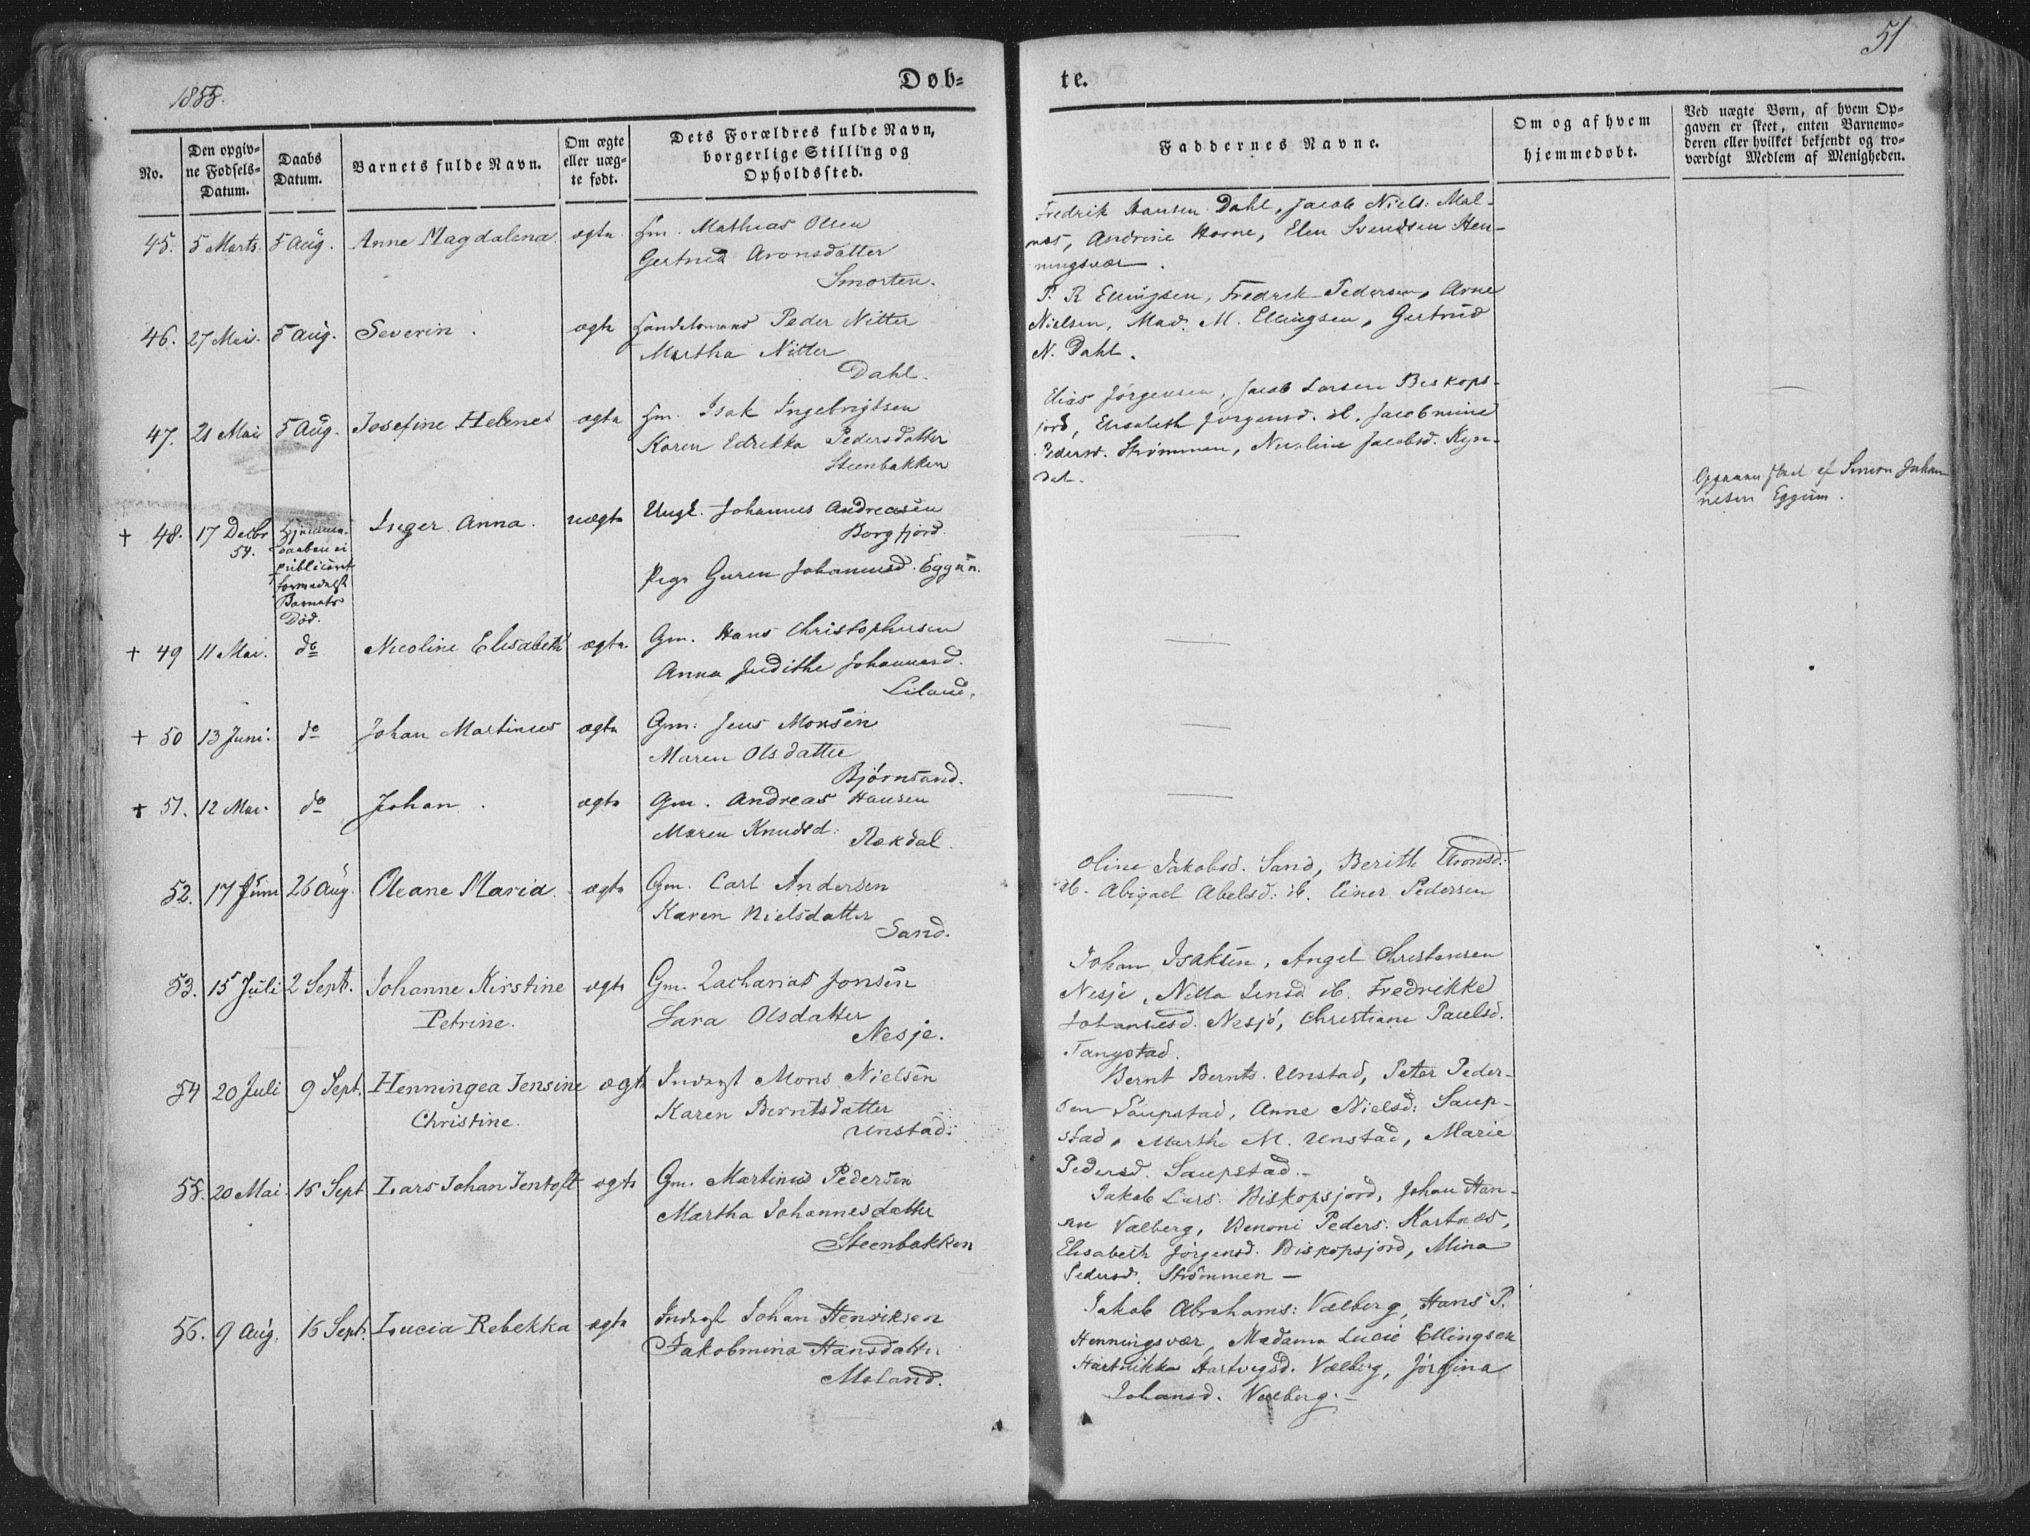 51
1855.
Døb-
te.
No.
Den opgiv-
ne Fødsels-
Datum.
Daabs
Datum.
Barnets fulde Navn.
Om ægte
eller uæg-
te født.
Dets Forældres fulde Navn,
borgerlige Stilling og
Opholdssted.
Faddernes Navne.
Om og af hvem
hjemmedøbt.
Ved uægte Børn, af hvem Op-
gaven er skeet, enten Barnemo-
deren eller hvilket bekjendt og tro-
værdigt Medlem af Menigheden.
45. 5 Marts. 5 Aug. Anne Magdalena. ægte Hm. Mathias Olsen
Gertrud Aronsdatter
Smorten.
Fredrik Hansen Dahl, Jacob Niels. Mal-
nes, Andrine Horne, Elen Svendsen Hen-
ningsvær.
46. 27 Mai. 5 Aug. Severin. ægte Handelsmand Peder Nitter
Martha Nitter
Dahl.
P. R Ellingsen, Fredrik Pedersen, Arne
Nielsen, Mad. M. Ellingsen, Gertrud
N. Dahl.
47. 21 Mai 5 Aug. Josefine Helene ægte Hm. Isak Ingebrigtsen
Karen Edrikka Pedersdatter
Steenbakken
Elias Jörgensen, Jacob Larsen Biskops-
jord, Elisabeth Jörgensd. ib. Jacobmine
Pedersd. Strømmen, Nicoline Jacobsd. Kyn-
del.
† 48. 17 Decbr
54.
Hjemme-
daaben ei
publiceret
formedelst
Barnets
Död.
Inger Anna. uægte Ungk. Johannes Andreasen
Borgfjord.
Pige Guren Johannesd. Eggum.
Opgaven skeet af Simon Johan-
nesen Eggum.
† 49 11 Mai. do Nicoline Elisabeth ægte. Gm. Hans Christophersen
Anna Judithe Johannesd.
Liland.
† 50 13 Juni. do Johan Martinus ægte Gm. Jens Monsen
Maren Olsdatter
Bjørnsand.
† 51. 12 Mai. do Johan. ægte Gm. Andreas Hansen
Maren Knudsd.
Rækdal.
52. 17 Juni 26 Aug. Oleane Maria. ægte Gm. Carl Andersen
Karen Nielsdatter
Sand.
Oline Jakobsd. Sand, Berith Aronsd.
ib. Abigael Abelsd. ib. Einer Pedersen
53. 15 Juli 2 Septb. Johanne Kirstine ægte Gm. Zacharias Jonsen
Petrine. Sara Olsdatter
Nesje.
Johan Isaksen, Angel Christensen
Nesje, Nella Jensd ib. Fredrikke
Johannesd. Nesje, Christiane Paulsd.
Tangstad.
54 20 Juli 9 Sept. Henningea Jensine ægte Inderst Mons Nielsen
Christine. Karen Berntsdatter
Unstad.
Bernt Bernts. Unstad, Peter Peder-
sen Saupstad, Anne Nielsd: Saup-
stad, Marthe M. Unstad, Marie
Pedersd. Saupstad.-
55. 20 Mai. 16 Sept Lars Johan Jentoft ægte Gm. Martinus Pedersen
Martha Johannesdatter
Steenbakken
Jakob Lars. Biskopsjord, Johan Han-
sen Valberg, Benoni Peders. Kartnes,
Elisabeth Jörgensd. Biskopsjord, Mina
Pedersd. Strömmen -
56. 9 Aug. 16 Sept. Lucia Rebekka ægte Inderst Johan Henriksen
Jakobmina Hansdatter
Moland.
Jakob Abrahams: Valberg, Hans P.
Henningsvær, Madame Lucie Ellingsen
Hartvikka Hartvigsd. Valberg, Jörgina
Johansd. Valberg.-